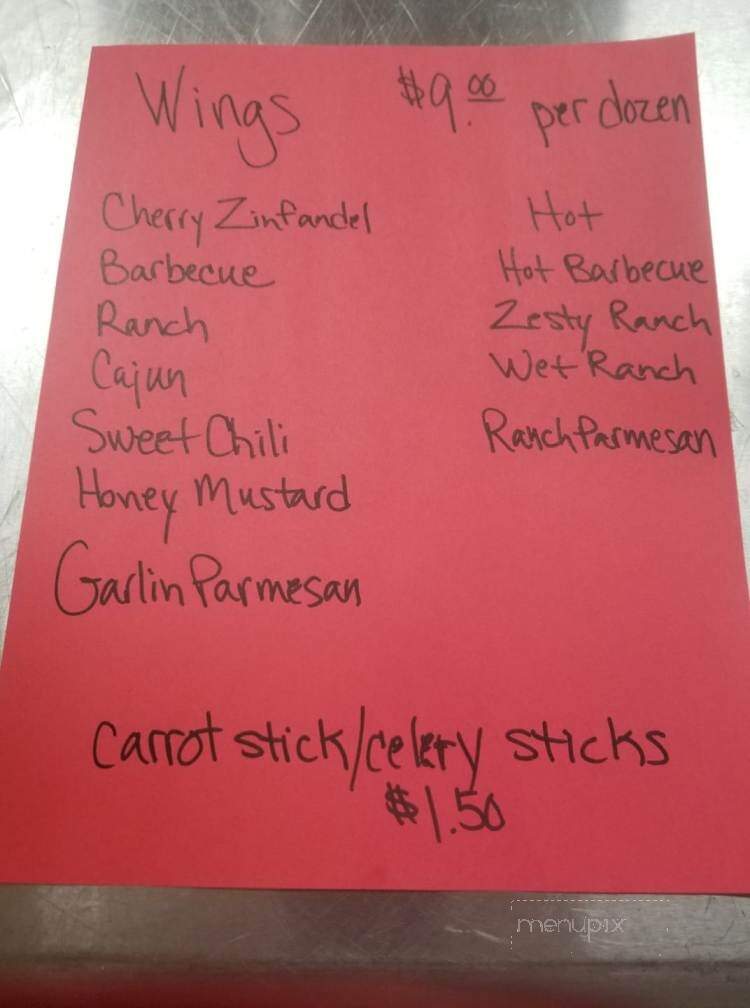 Wings $9.00 per dozen
Cherry Zinfandel
Barbecue
Ranch
Cajun
Sweet Chili
Honey Mustard
Garlin Parmesan
Hot
Hot Barbecue
Zesty Ranch
Wet Ranch
Ranch Parmesan
Carrot stick/celery sticks
$1.50
menupix